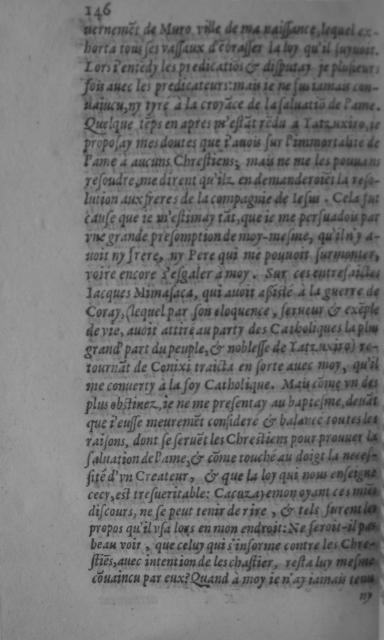 146
uernemẽt de Muro, ville de ma naissance, lequel ex-
horta tous ses vassaux d'ẽbrasser la loy qu'il suyuoit.
Lors i'entẽdy les predicatiõs & disputay je plusieurs
fois auec les predicateurs: mais ie ne fus iamais con-
uaincu, ny tyré à la croyãce de la saluatiõ de l'ame.
Quelque tẽps en apres m'estãt rẽdu à Yatzuxiro, ie
proposay mes doutes que i'auois sur l'immortalité de
l'ame à aucuns Chrestiens; mais ne me les pouuans
resoudre, me dirent qu'ilz en demanderoiẽt la reso-
lution aux freres de la compagnie de Iesus. Cela fut
cause que ie m'estimay tãt, que ie me persuadois par
vne grande presomption de moy-mesme, qu'il n'y a-
uoit ny frere, ny Pere qui me pouuoit surmonter,
voire encore s'esgaler à moy. Sur ces entrefaictes
Iacques Mimasaca, qui auoit assisté à la guerre de
Coray, (lequel par son eloquence, ferueur & exẽple
de vie, auoit attiré au party des Catholiques la plus
grand' part du peuple, & noblesse de Yatzuxiro) re-
tournãt de Conixi traicta en sorte auec moy, qu'il
me conuerty à la foy Catholique. Mais cõme vn des
plus obstinez, ie ne me presentay au baptesme, deuãt
que i'eusse meuremẽt consideré & balancé toutes les
raisons, dont se seruẽt les Chrestiens pour prouuer la
saluation de l'ame, & cõme touché au doigt la neces-
sité d'vn Createur, & que la loy qui nous enseigne
cecy, est tresueritable: Cacuzayemon oyant ces miẽs
discours, ne se peut tenir de rire, & tels furent les
propos qu'il vsa lors en mon endroit: Ne seroit-il pas
beau voir, que celuy qui s'informe contre les Chre-
stiẽs, auec intention de les chastier, resta luy mesme
cõuaincu par eux? Quand à moy ie n'ay iamais tenu
ny